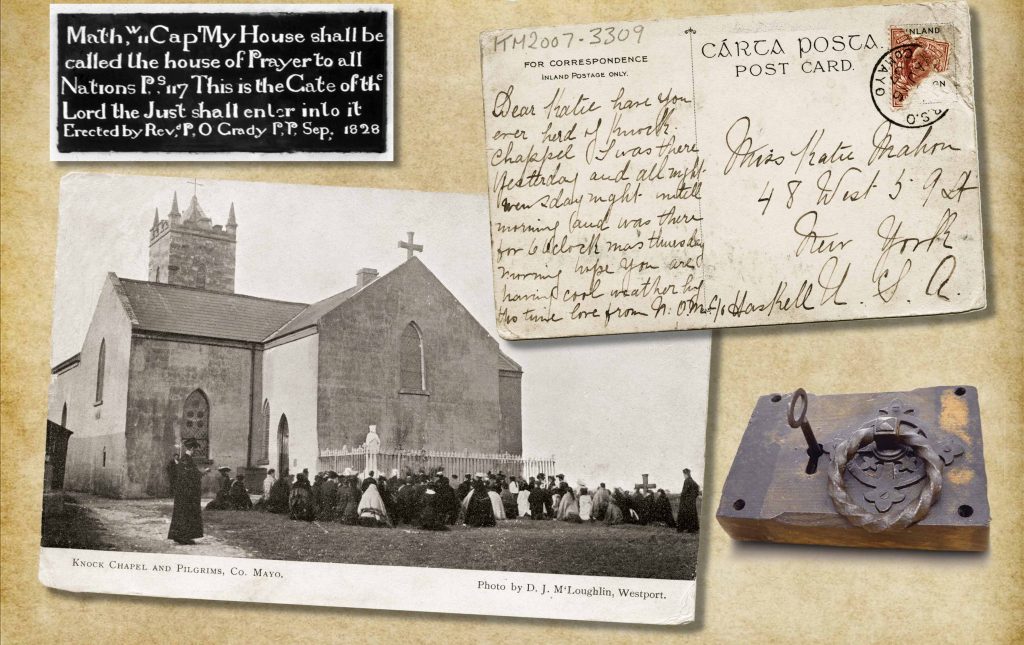 Math,w 11 Capr My House shall be
called the house of Prayer to all
Nations P,s 117 This is the Gate of the
Lord the Just shall enter into it
Erected by Revd P, O Grady P.P. Sep, 1828
KM2007-3309
FOR CORRESPONDENCE
INLAND POSTAGE ONLY.
Dear Katie have you
ever herd of Knock
Chappel I was there
yesterday and all night
wensday night untill
morning and was there
for 6 oclock mas thursday
morning hope you are
having cool weather by
this time love from
CÁRTA POSTA.
POST CARD.
INLAND
MAYO
R.S.O.
Miss Katie Mahon
48 West 59 St
New York
c/o Haskell U. S. A.
KNOCK CHAPEL AND PILGRIMS, CO. MAYO.
Photo by D. J. M'Loughlin, Westport.